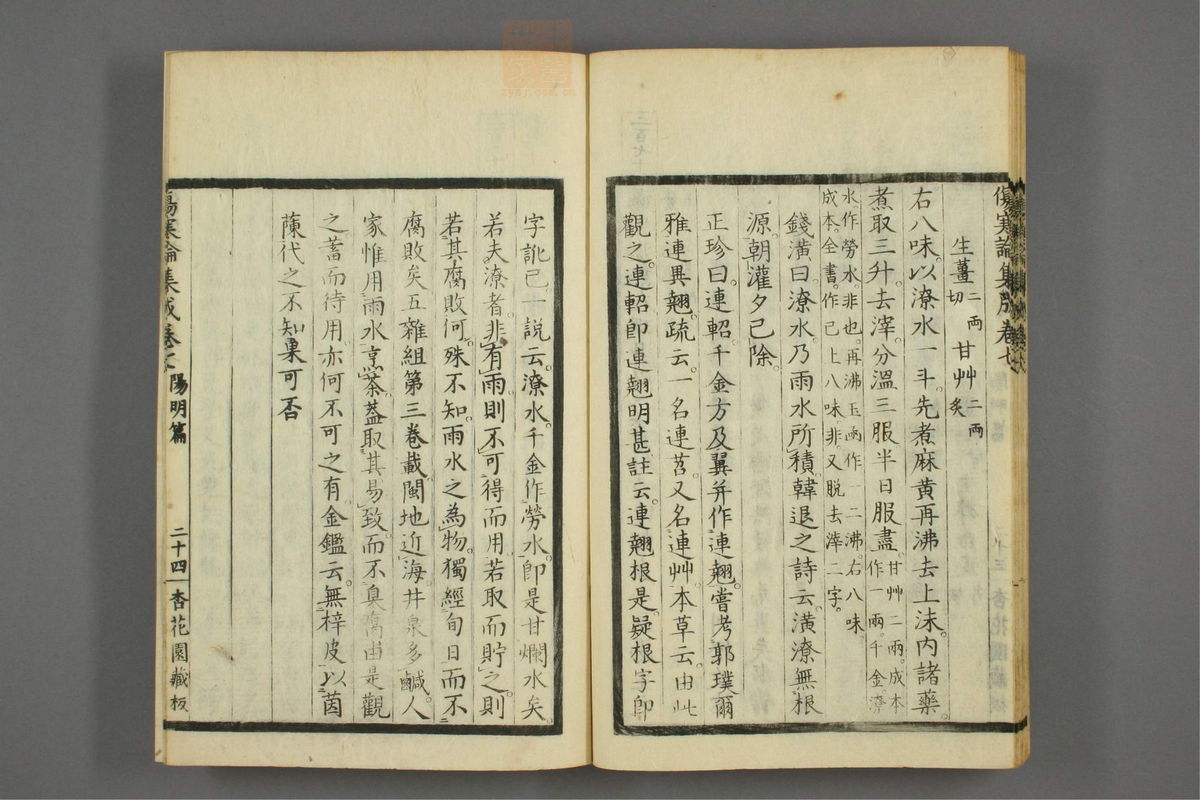 傷寒論集成卷七
生薑二兩切 甘艸二兩炙
右八味以潦水一斗先煮麻黃再沸去上沫內諸藥
煮取三升去滓分溫三服半日服盡甘艸二兩成本作一兩千金潦
水作勞水非也再沸玉函作一二沸右八味成本全書作已上八味非又脫去滓二字
錢潢曰潦水乃雨水所積韓退之詩云潢潦無根
源朝灌夕已除
正珍曰連軺千金方及翼并作連翹嘗考郭璞爾
雅連異翹疏云一名連苕又名連艸本草云由此
觀之連軺卽連翹明甚註云連翹根是疑根字卽
字訛已一說云潦水千金作勞水卽是甘爛水矣
若夫潦者非有雨則不可得而用若取而貯之則
若其腐敗何殊不知雨水之為物獨經旬日而不
腐敗矣五雜組第三卷載閩地近海井泉多鹹人
家惟用雨水烹茶蓋取其易致而不臭腐由是觀
之蓄而待用亦何不可之有金鑑云無梓皮以茵
蔯代之不知果可否
傷寒論集成卷七 陽明篇 二十四 杏花園藏板